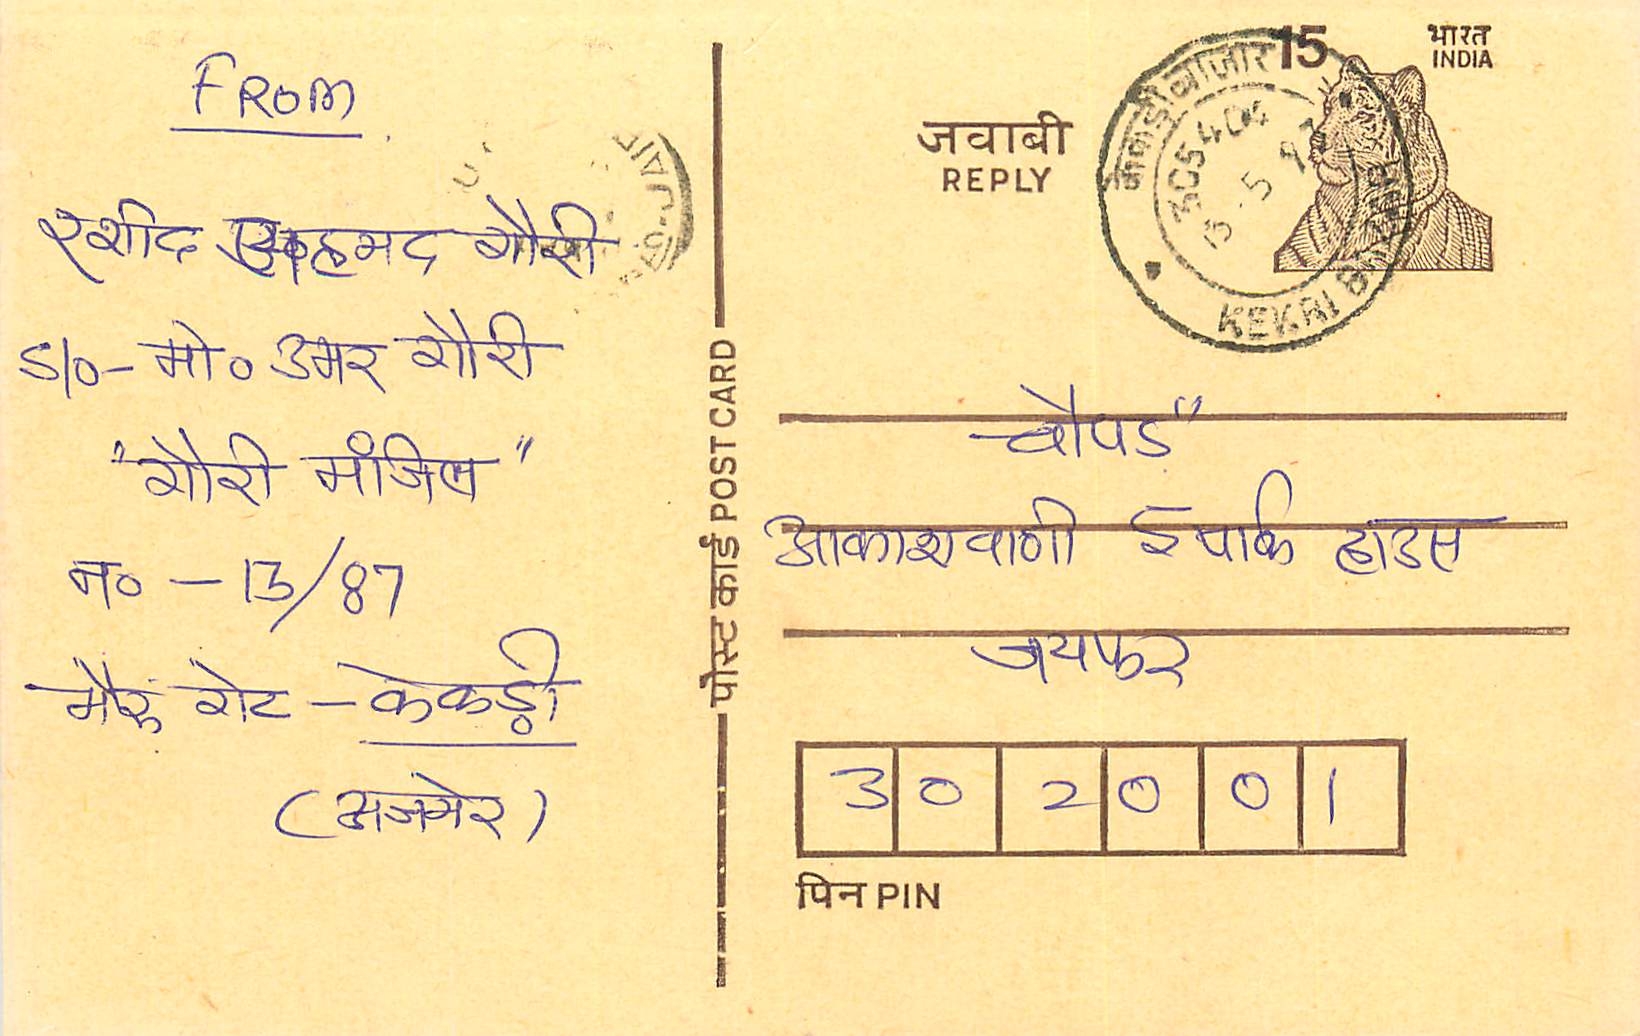 FROM
रशीद अहमद गौरी
S/o- मो० उमर गौरी
"गौरी मंजिल"
न० - 13/87
भैरू गेट - केकड़ी
(अजमेर)
पोस्ट कार्ड POST CARD
15
भारत
INDIA
जवाबी
REPLY
केकड़ी बाजार
305404
KEKRI BAZAR
चौपड"
आकाशवाणी ई पार्क हाउस
जयपुर
302001
पिन PIN